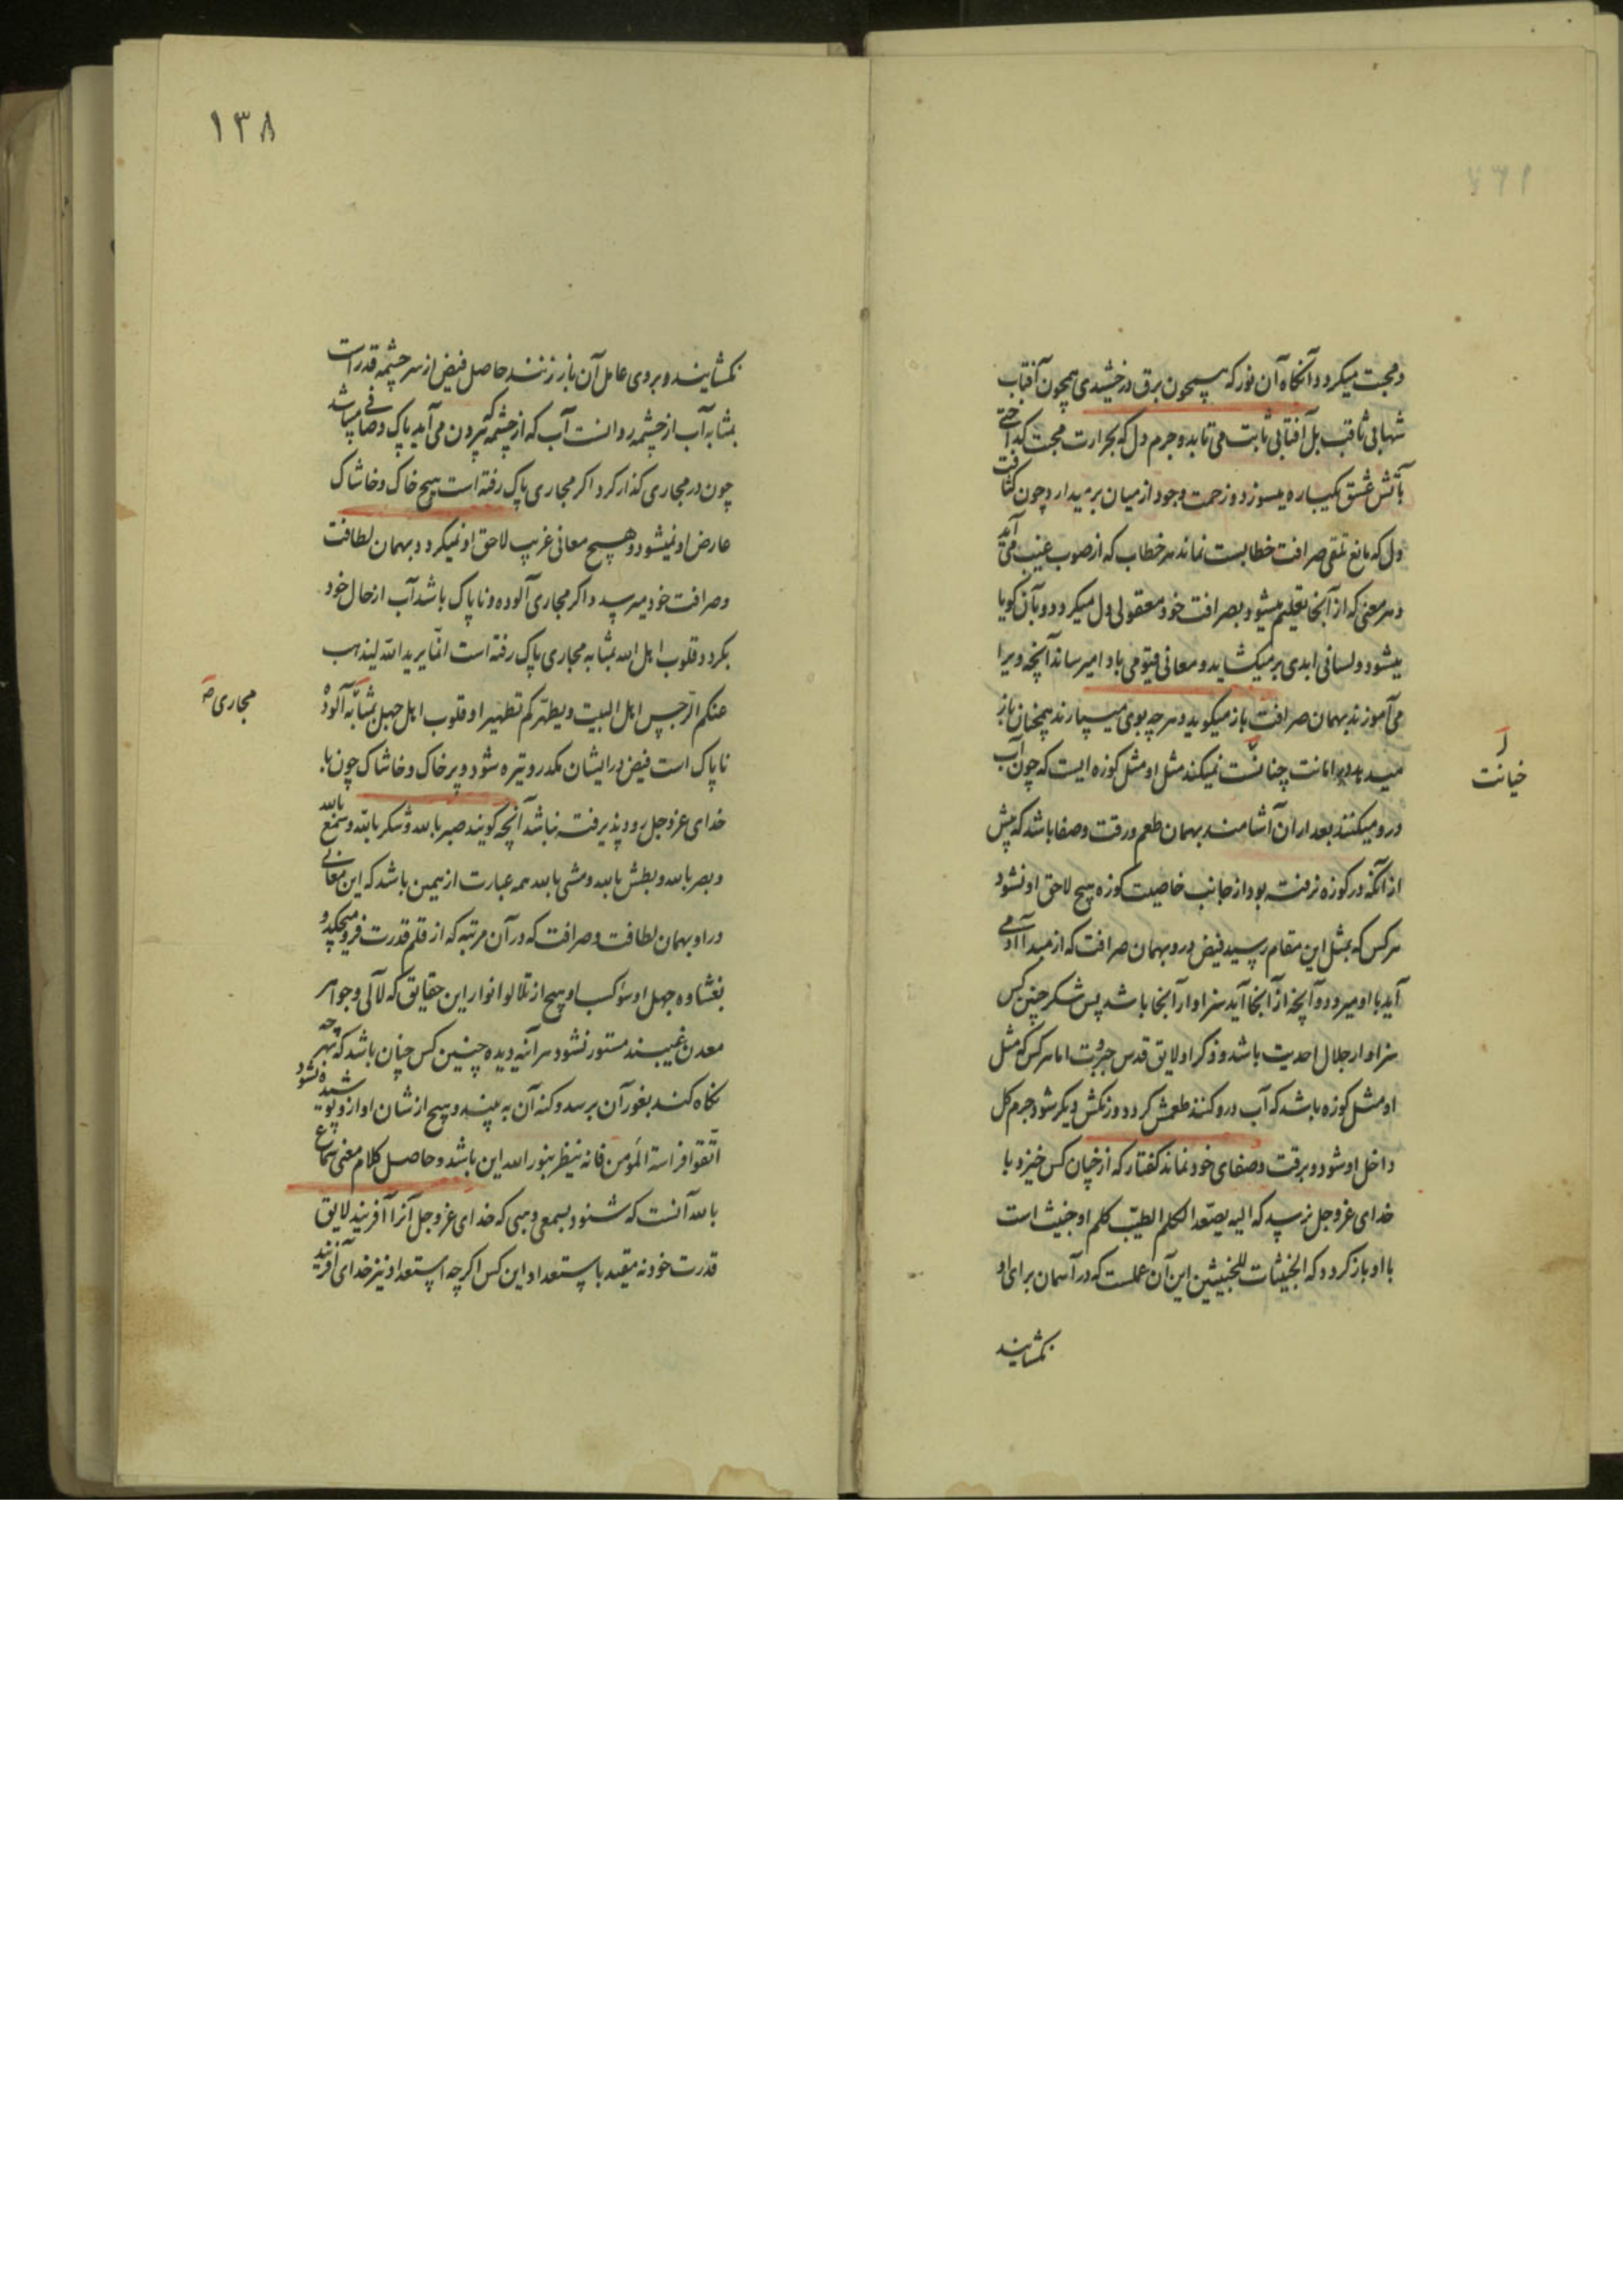 و محبت میکردد و آنکاه آن نور که همچون برق درخشیدی همچون آفتاب
شهابی ثاقب بل آفتابی ثابت می تابد و جرم دل که بحرارت محبت کداختی
بآتش عشق یکباره میسوزد و زحمت وجود از میان بر میدارد و چون کثافت
دل که مانع تلقی صرافت خطابست نماند هر خطاب که از صوب غیب می آید
و هر معنی که از آنجا تعلیم میشود بصرافت خود معقول دل میکردد و بآن کویا
میشود و لسانی ابدی بر میکشاید و معانی قیومی باد امیرساند آنچه ویرا
می آموزند بهمان صرافت باز میکوید و هر چه بوی میسپارند همچنان باز
میدهد و در امانت چنانست نمیکند مثل او مثل کوزه ایست که چون آب
خیانت
درو میکنند بعد از آن آشامند بهمان طعم و رقت و صفا باشد که پیش
از آنکه در کوزه نرفته بود از جانب خاصیت کوزه هیچ لاحق او نشود
هر کس که بمثل این مقام رسید فیض درو بهمان صرافت که از مبدا او می
آید با او میرود و آنچه از آنجا آید سزاوار آنجا باشد پس شکر چنین کس
سزاوار جلال احدیت باشد و ذکر او لایق قدس جبروت اما هر کس که مثل
او مثل کوزه باشد که آب درو کنند طعمش کردد و رنکش دیکر شود جرم کل
داخل او شود و برقت و صفای خود نماند کفتار که از چنان کس خیزد با
خدای عزوجل نرسد که الیه یصعد الکلم الطیب کلم او خبیث است
با او باز کردد که الخبیثات للخبیثین این آن عملست که در آسمان برای او
بکشایند
۱۳۸
بکشایند و بروی عامل آن باز زنند حاصل فیض از سر چشمه قدرت
بمثابه آب از چشمه روانست آب که از چشمه بیرون می آید پاک و صافی میباشد
چون در مجاری کذار کرد اکر مجاری پاک رفته است هیچ خاک و خاشاک
عارض او نمیشود و هیچ معانی غریب لاحق او نمیکردد و بهمان لطافت
و صرافت خود میرسد و اکر مجاری آلوده و ناپاک باشد آب از حال خود
بکردد و قلوب اهل الله بمثابه مجاری پاک رفته است انما یرید الله لیذهب
عنکم الرجس اهل البیت و یطهرکم تطهیرا و قلوب اهل جهل بمثابه آلوده
مجاری
ناپاک است فیض در ایشان مکدر و تیره شود و پر خاک و خاشاک چون با
خدای عزوجل رود پذیرفته نباشد آنچه کویند صبر بالله و شکر بالله و سمع بالله
و بصر بالله و بطش بالله و مشی بالله همه عبارت از همین باشد که این معانی
در او بهمان لطافت و صرافت که در آن مرتبه که از قلم قدرت فرو میچکید و
بغشاوه جهل او سؤ کسب او هیچ از تلالو انوار این حقایق که لآلی و جواهر
معدن غیبند مستور نشود هر آینه دیده چنین کس چنان باشد که بهر چه
نکاه کند بغور آن برسد و کنه آن به بیند و هیچ از شان او ازو پوشیده نشود
اتقوا فراسة المؤمن فانه ینظر بنور الله این باشد و حاصل کلام معنی سماع
بالله آنست که شنود بسمعی و هبی که خدای عزوجل آنرا آفریند لایق
قدرت خود نه مقید باستعداد این کس اکرچه استعداد نیز خدای آفریند